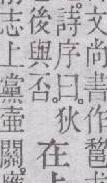 文尚書作
詩序曰。狄
後與否。在
志上黨壺關